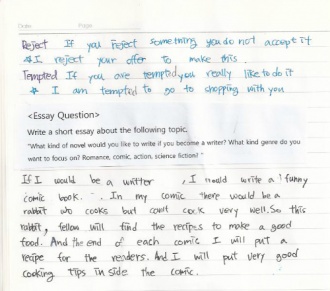 Date: Page:
Reject If you reject something you do not accept it
☆ I reject your offer to make this.
Tempted If you are tempted, you really like to do it
★ I am tempted to go to shopping with you
<Essay Question>
Write a short essay about the following topic.
"What kind of novel would you like to write if you become a writer? What kind genre do you
want to focus on? Romance, comic, action, science fiction? "
If I would be a writter , I would write a funny
comic book. In my comic there would be a
rabbit wo cooks but can't cook very well. So this
rabbit, fellow will find the recipes to make a good
food. And the end of each comic I will put a
recipe for the renders. And I will put very good
cooking tips in side the comic.